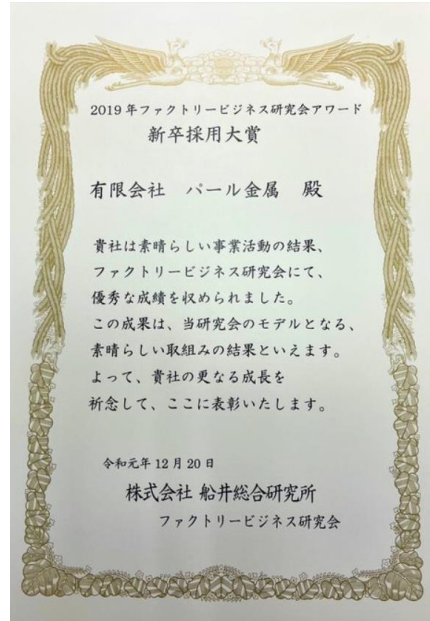 2019年ファクトリービジネス研究会アワード
新卒採用大賞
有限会社 パール金属 殿
貴社は素晴らしい事業活動の結果、
ファクトリービジネス研究会にて、
優秀な成績を収められました。
この成果は、当研究会のモデルとなる、
素晴らしい取組みの結果といえます。
よって、貴社の更なる成長を
祈念して、ここに表彰いたします。
令和元年12月20日
株式会社 船井総合研究所
ファクトリービジネス研究会